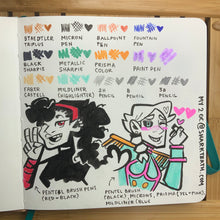 STAEDTLER TRIPLUS
MICRON PEN
BALLPOINT PEN
FOUNTAIN PEN
BLACK SHARPIE
METALLIC SHARPIE
PRISMA COLOR
PAINT PEN
FABER CASTELL
MILDLINER (HIGHLIGHTER)
2H PENCIL
3B PENCIL
PENTEL BRUSH PENS
(RED + BLACK)
PENTEL BRUSH
(BLACK), MICRONS, PRISMA (YEL+PINK)
MILDLINER (BLUE
MY 2 OC @SHARKTEATH.COM